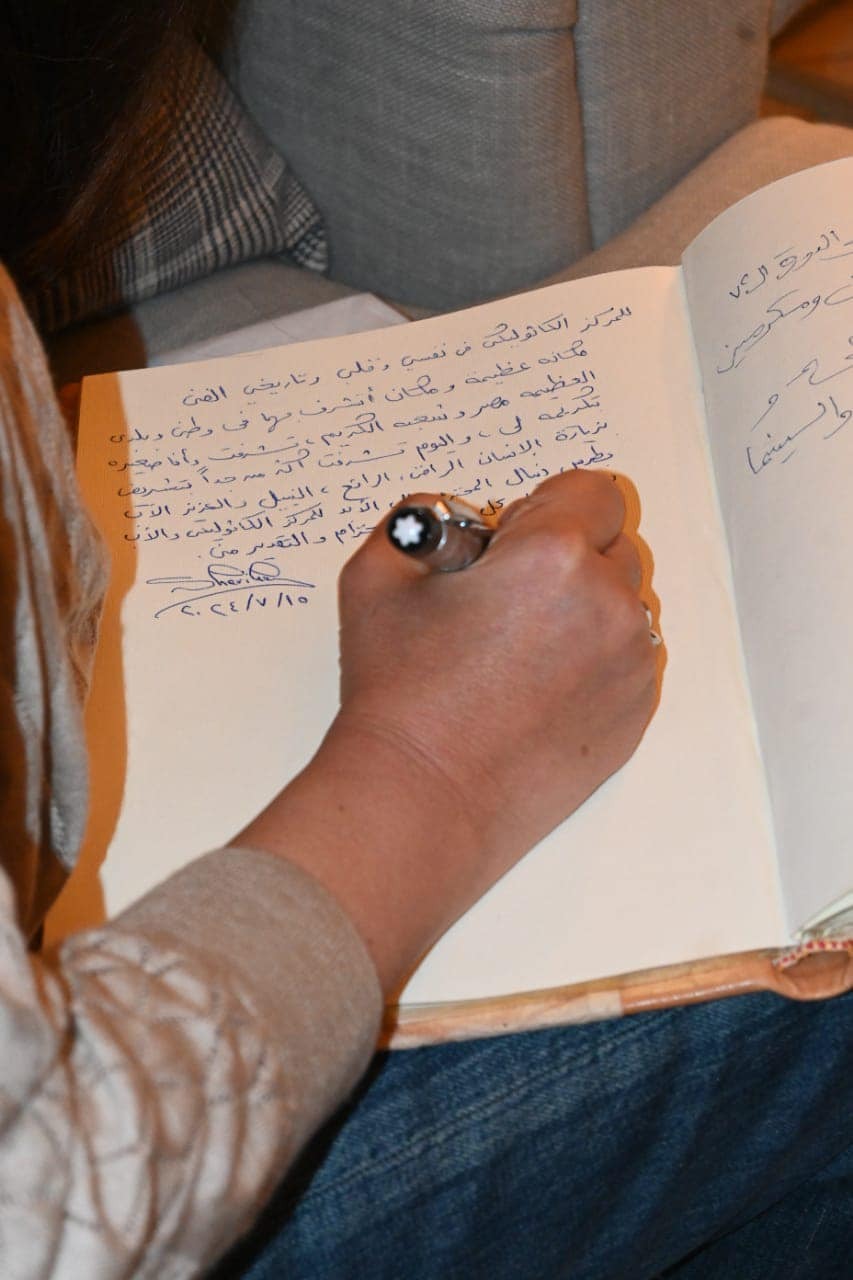 للمركز الكاثوليكى فى نفسي وقلبي وتاريخي الفنى
مكانه عظيمة ومكان أتشرف بها فى وطنى وبلدى
العظيمه مصر وشعبه الكريم، تشرفت وأنا صغيره
تكريمه لى، واليوم تشرفت أكثر من جداً بتشريف
بزيارة الانسان الراقى، الرائع، النبيل والعزيز الأب
بطرس دنيال المحترم الأبد للمركز الكاثوليكى والأب
بكل والتقدير منى.
Sherihan
٢٠٢٤/٧/١٥
الدورة الـ ٧٢
ومكرمين
و
والسينما